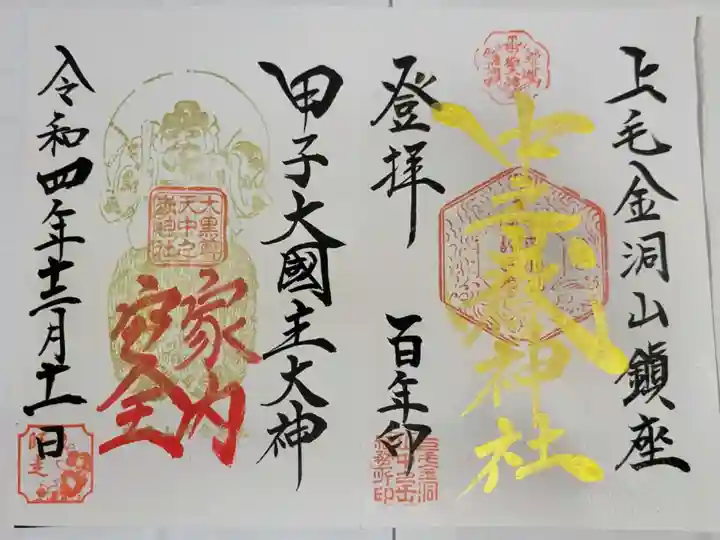 上毛金洞山鎮座
中之嶽神社
登拝
百年印
甲子大國主大神
大黒尊
天中之
嶽神社
家内
安全
令和四年十二月十一日
師走